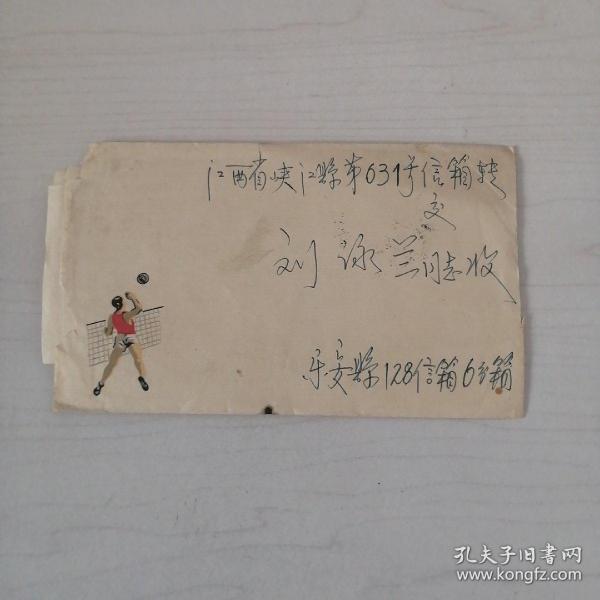 江西省峡江縣第631号信箱转
交
刘咏兰同志收
乐安縣128信箱6分箱
孔夫子旧书网
www.kongfz.com